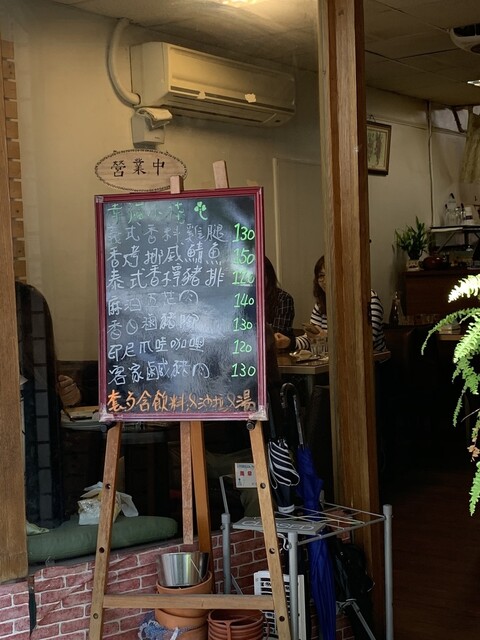 營業中
義式香料雞腿 130
香烤挪威鯖魚 150
泰式香檸豬排 120
140
130
印尼爪哇咖哩 120
客家鹹豬肉 130
套夕含飲料&沙拉&湯